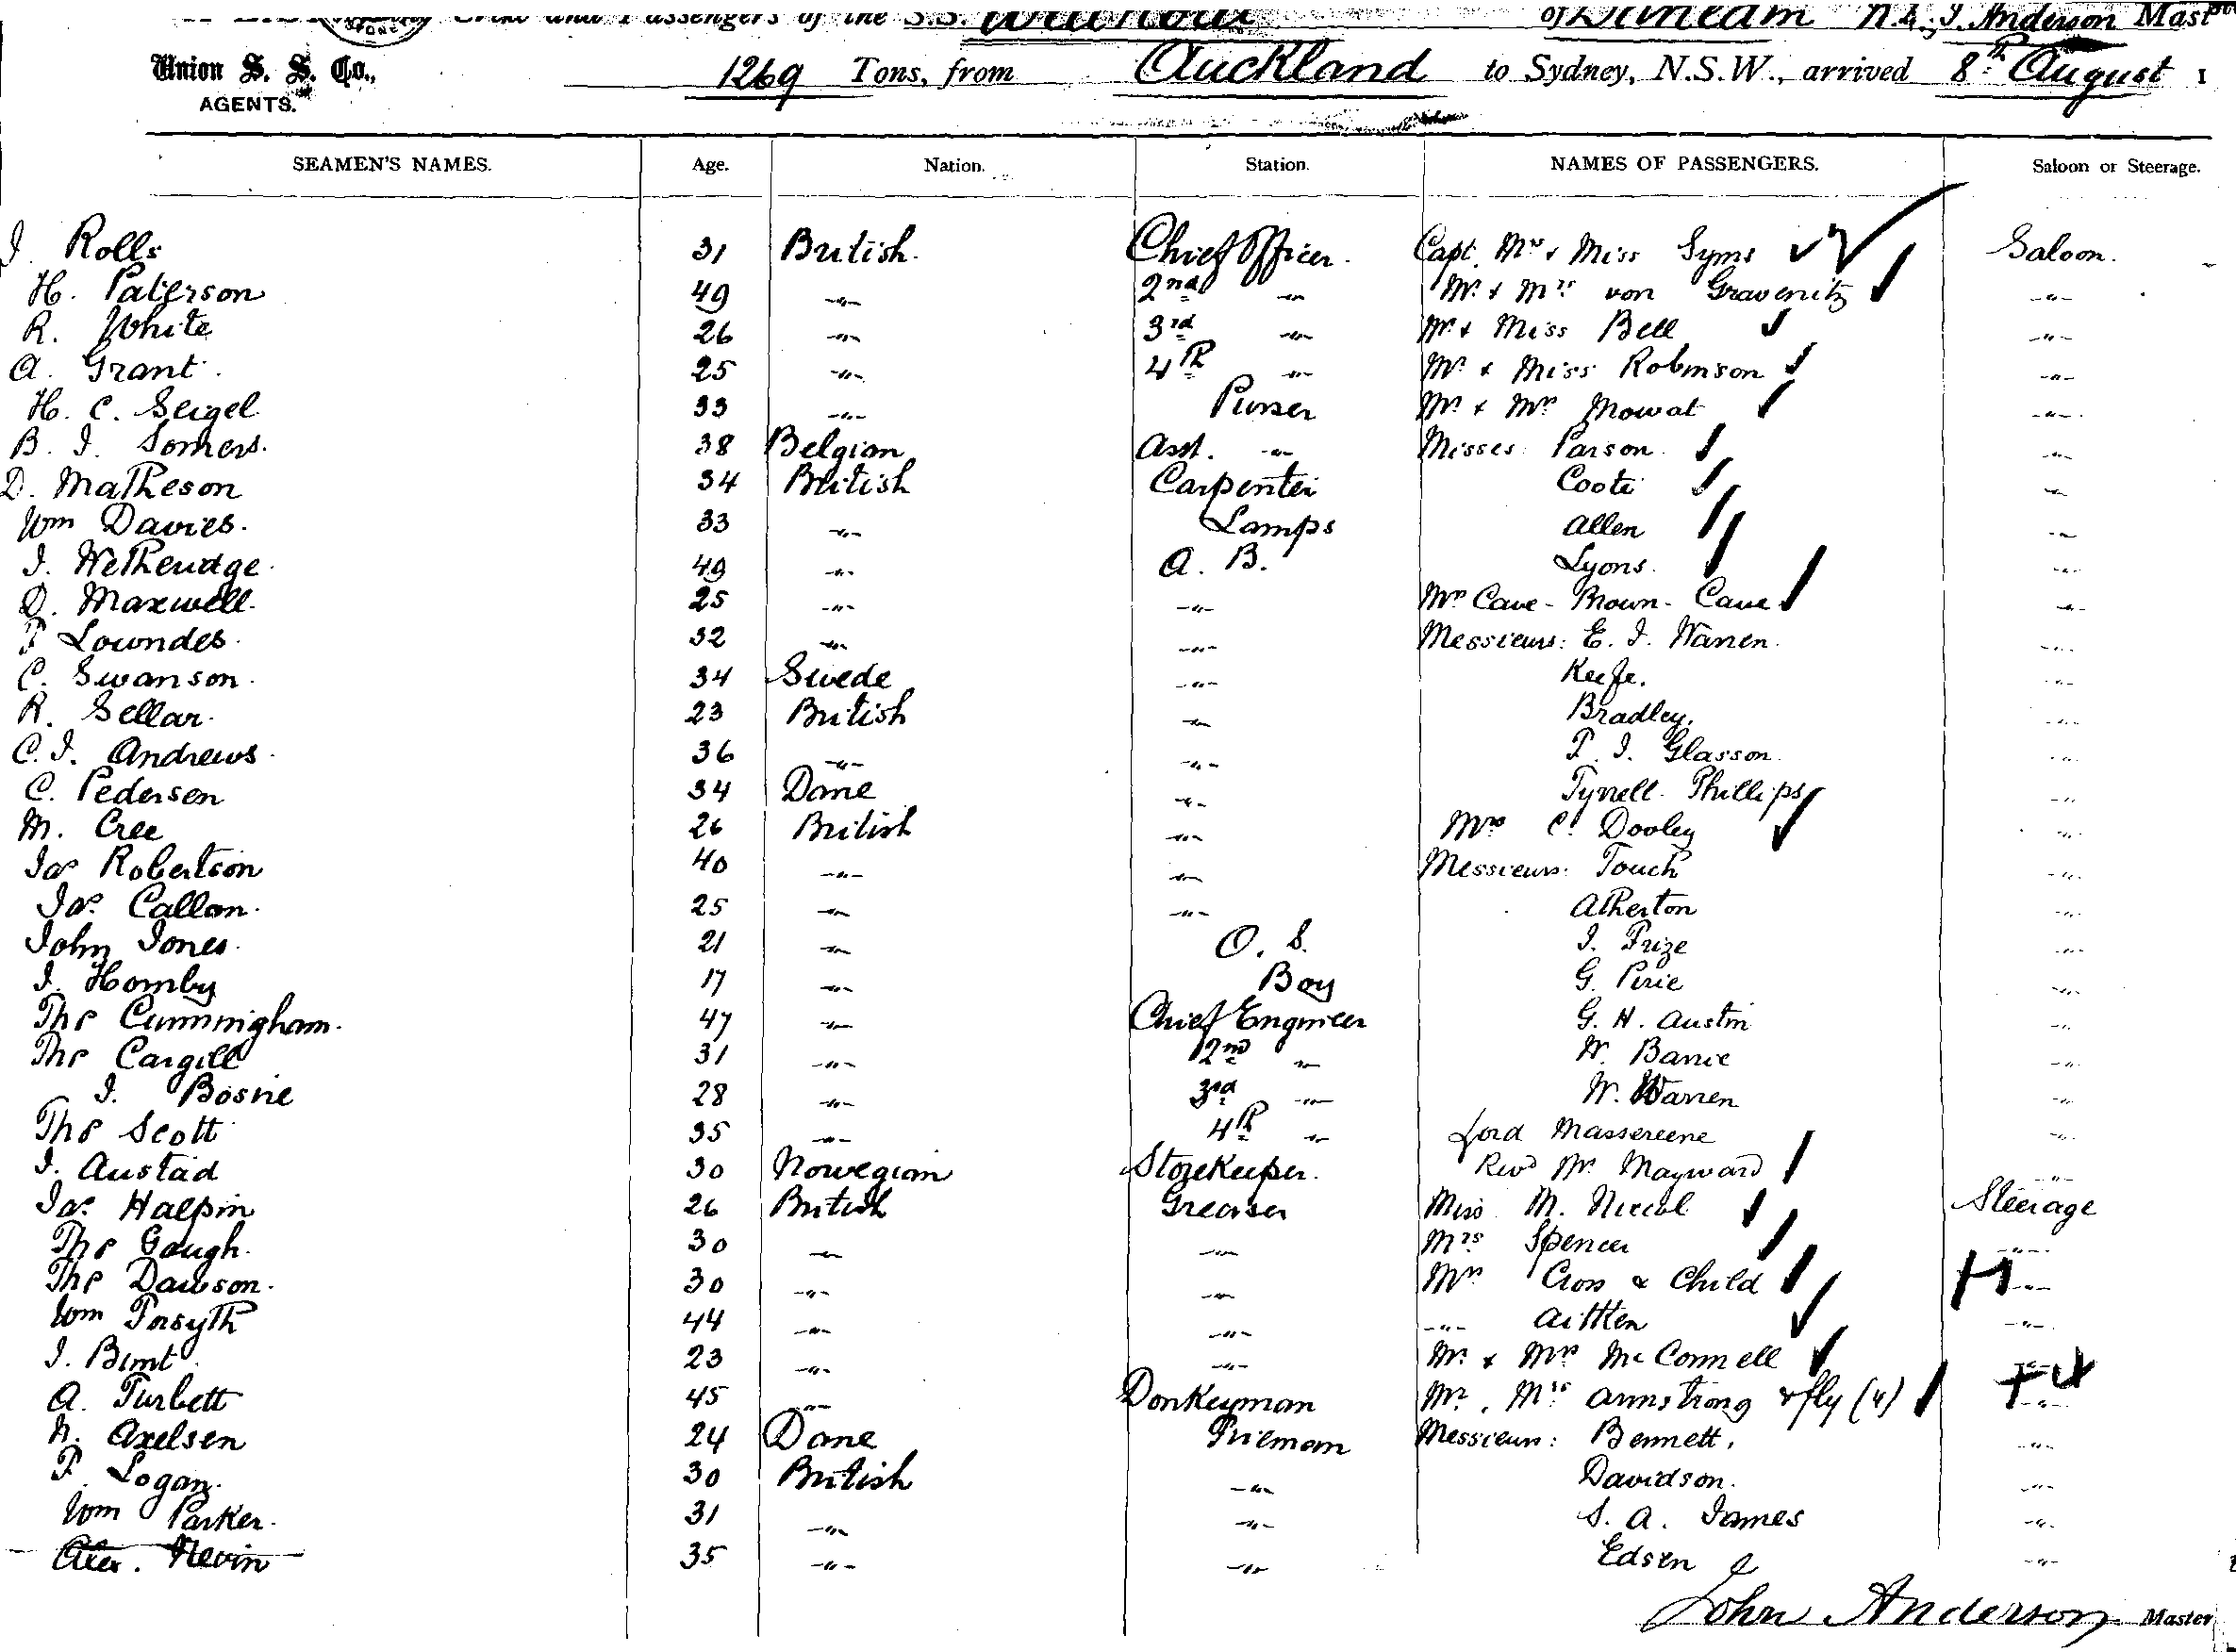 Crew and Passengers of the S.S. of J. Anderson Mast
Union S. S. Co.,
AGENTS.
1269 Tons, from Auckland to Sydney, N.S.W., arrived 8th August 1
SEAMEN'S NAMES. Age. Nation. Station. NAMES OF PASSENGERS. Saloon or Steerage.
J. Rolls 31 British. Chief Officer. Capt. Mrs & Miss Syms Saloon.
H. Paterson 49 -"- 2nd -"- Mr. & Mrs von Gravenitz -"-
R. White 26 -"- 3rd -"- Mr & Miss Bell -"-
A. Grant. 25 -"- 4th -"- Mr & Miss Robinson -"-
H. C. Seigel 33 -"- Purser Mr & Mrs Mowat -"-
B. J. Somers. 38 Belgian Asst. -"- Misses Parson -"-
D. Matheson 34 British Carpenter Coote -"-
Wm Davies. 33 -"- Lamps Allen -"-
J. Wetheridge. 49 -"- A. B. Lyons. -"-
D. Maxwell. 25 -"- -"- Mrs Cave-Brown-Cave -"-
Lowndes. 32 -"- -"- Messieurs: E. J. Warren. -"-
C. Swanson. 34 Swede -"- Keefe. -"-
R. Sellar. 23 British -"- Bradley. -"-
C. J. Andrews. 36 -"- -"- J. Glasson. -"-
C. Pedersen 34 Dane -"- Tyrrell Phillips -"-
M. Cree 26 British -"- Mrs C. Dooley -"-
Jas Robertson 40 -"- -"- Messieurs: Touch -"-
Jas. Callan. 25 -"- -"- Atherton -"-
John Jones. 21 -"- O. S. J. Prize -"-
J. Hornby 17 -"- Boy G. Pirie -"-
Thos Cunningham. 47 -"- Chief Engineer G. H. Austin -"-
Thos Cargill 31 -"- 2nd -"- W. Barrie -"-
J. 28 -"- 3rd -"- W. Warren -"-
Thos Scott 35 -"- 4th -"- Lord Massereene -"-
J. Austad 30 Norwegian Storekeeper. Revd Mr. Mayward -"-
Jas. Halpin 26 British Greaser Miss M. Niccol Steerage
Thos Gough. 30 -"- -"- Mrs Spencer -"-
Thos Dawson. 30 -"- -"- Mrs Cross & Child -"-
Wm Forsyth 44 -"- -"- -"- Aitken -"-
J. 23 -"- -"- Mr. & Mrs McConnell -"-
A. Turbett 45 -"- Donkeyman Mr. Mrs Armstrong & fly (4) -"-
N. Axelsen 24 Dane Fireman Messieurs: Bennett. -"-
Logan. 30 British -"- Davidson. -"-
Wm Parker. 31 -"- -"- S. A. James -"-
Alex. Nevin 35 -"- -"- Edsen -"-
John Anderson Master